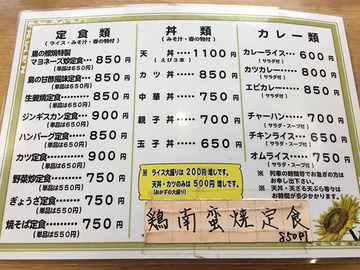 定食類
(ライス・みそ汁・香の物付)
島の鰹焼特製
マヨネーズ炒定食… 850円
(単品は650円)
島の甘酢風味定食… 850円
(単品は650円)
生姜焼定食……… 850円
(単品は650円)
ジンギスカン定食… 900円
(単品は700円)
ハンバーグ定食…… 850円
(単品は650円)
カツ定食………… 900円
(単品は700円)
野菜炒め定食…… 750円
(単品は550円)
ぎょうざ定食…… 750円
(単品は550円)
焼そば定食……… 750円
(単品は550円)
丼類
(みそ汁・香の物付)
天丼…… 1100円
(えび3本)
カツ丼…… 850円
中華丼…… 750円
親子丼…… 700円
玉子丼…… 650円
※ライス大盛りは200円増しです。
天丼・カツのみは500円増しです。
(おかずの大盛り)
カレー類
カレーライス…… 600円
(サラダ付)
カツカレー…… 800円
(サラダ付)
エビカレー…… 850円
(サラダ付)
チャーハン…… 700円
(サラダ・スープ付)
チキンライス… 650円
(サラダ・スープ付)
オムライス…… 750円
(サラダ・スープ付)
※列車の時間等でお急ぎの方は
お申し出下さい。
※天丼・天ざる天ぷら等々は
お時間が多少かかります。
鶏南蛮焼定食
850円